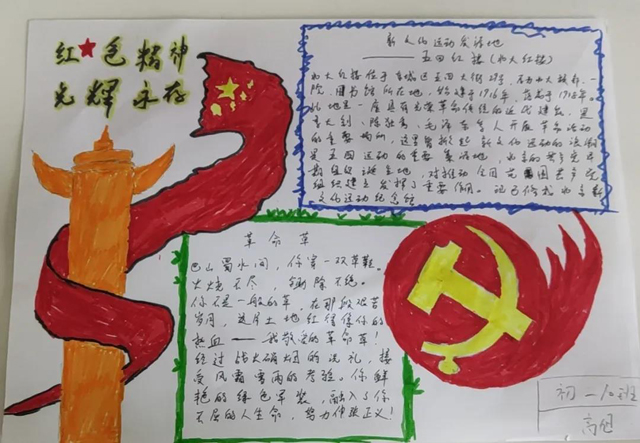 红色精神
光辉永存
新文化运动发源地
——五四红楼(北大红楼)
北大红楼位于东城区五四大街29号,为北大校部、一
院、图书馆所在地,始建于1916年,落成于1918年。
此地是一座具有光荣革命传统的近代建筑,是
李大钊、陈独秀、毛泽东等人开展革命活动
的重要场所,这里曾掀起新文化运动的浪潮
是五四运动的重要策源地,
组织建立发挥了重要作用。
文化运动纪念馆
革命草
巴山蜀水间,你穿一双草鞋。
火烧不尽,铡除不绝。
你不是一般的草 在那艰苦
岁月,这片土地红得像你的
热血——我敬爱的革命草!
经过战火硝烟的洗礼,接
受风霜雪雨的考验。你鲜
艳的绿色军装,融入了你
不屈的人生命,努力伸张正义!
初一10班